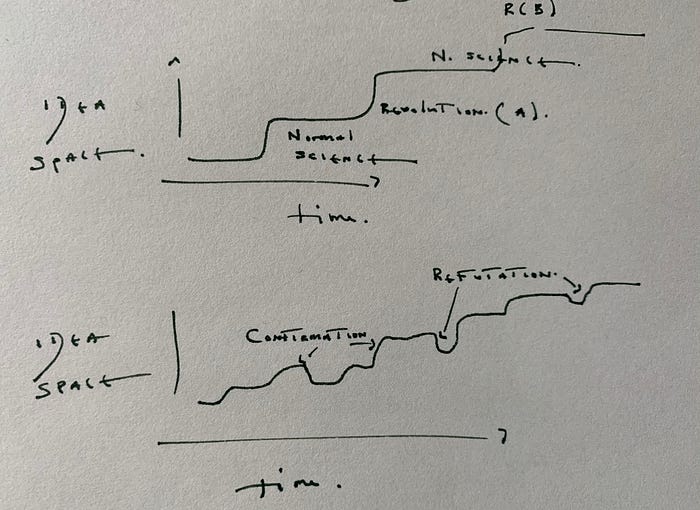 R(B)
N. SCIENCE.
IDEA
SPACE.
REVOLUTION. (A).
Normal
SCIENCE
time.
REFUTATION.
IDEA
SPACE
CONFIRMATION
time.